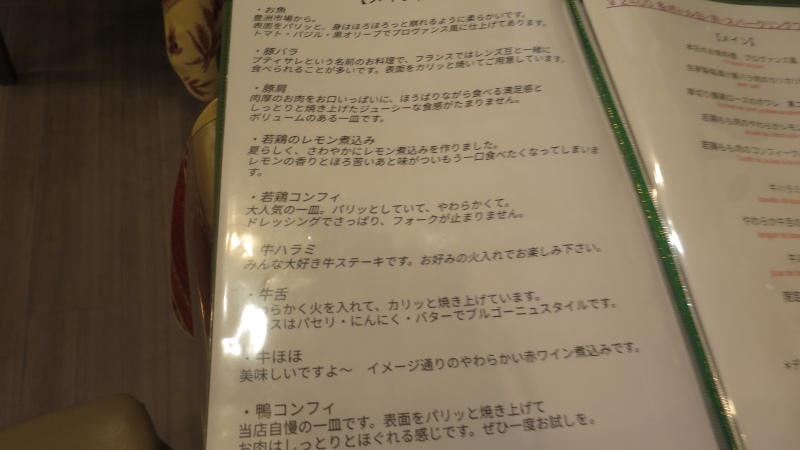 ・お魚
豊洲市場から。
表面をパリッと、身はほろほろっと崩れるように柔らかいです。
トマト・バジル・黒オリーブでプロヴァンス風に仕上げてあります。
・豚バラ
プティサレという名前のお料理で、フランスではレンズ豆と一緒に
食べられることが多いです。表面をカリッと焼いてご用意しています。
・豚肩
肉厚のお肉をお口いっぱいに、ほうばりながら食べる満足感と
しっとりと焼き上げたジューシーな食感がたまりません。
ボリュームのある一皿です。
・若鶏のレモン煮込み
夏らしく、さわやかにレモン煮込みを作りました。
レモンの香りとほろ苦いあと味がついもう一口食べたくなってしまいま
す。
・若鶏コンフィ
大人気の一皿。パリッとしていて、やわらかくて。
ドレッシングでさっぱり、フォークが止まりません。
・牛ハラミ
みんな大好き牛ステーキです。お好みの火入れでお楽しみ下さい。
・牛舌
わらかく火を入れて、カリッと焼き上げています。
スはパセリ・にんにく・バターでブルゴーニュスタイルです。
・牛ほほ
美味しいですよ〜 イメージ通りのやわらかい赤ワイン煮込みです。
・鴨コンフィ
当店自慢の一皿です。表面をパリッと焼き上げて
お肉はしっとりとほぐれる感じです。ぜひ一度お試しを。
【メイン】
本日のお魚料理 プロヴァンス風
若鶏もも肉のやわらかレモン
若鶏もも肉のコンフィーク
牛ハラミ
やわらか牛舌の
限定